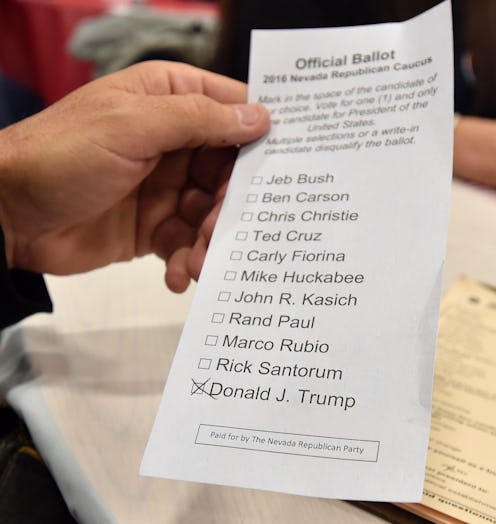 Official Ballot
2016 Nevada Republican Caucus
Mark in the space of the candidate of
choice. Vote for one (1) and only
candidate for President of the
United States.
Multiple selections or a write-in
candidate disqualify the ballot.
Jeb Bush
Ben Carson
Chris Christie
Ted Cruz
Carly Fiorina
Mike Huckabee
John R. Kasich
Rand Paul
Marco Rubio
Rick Santorum
Donald J. Trump
Paid for by The Nevada Republican Party